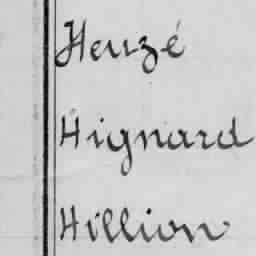 Heuzé
Hignard
Hillion